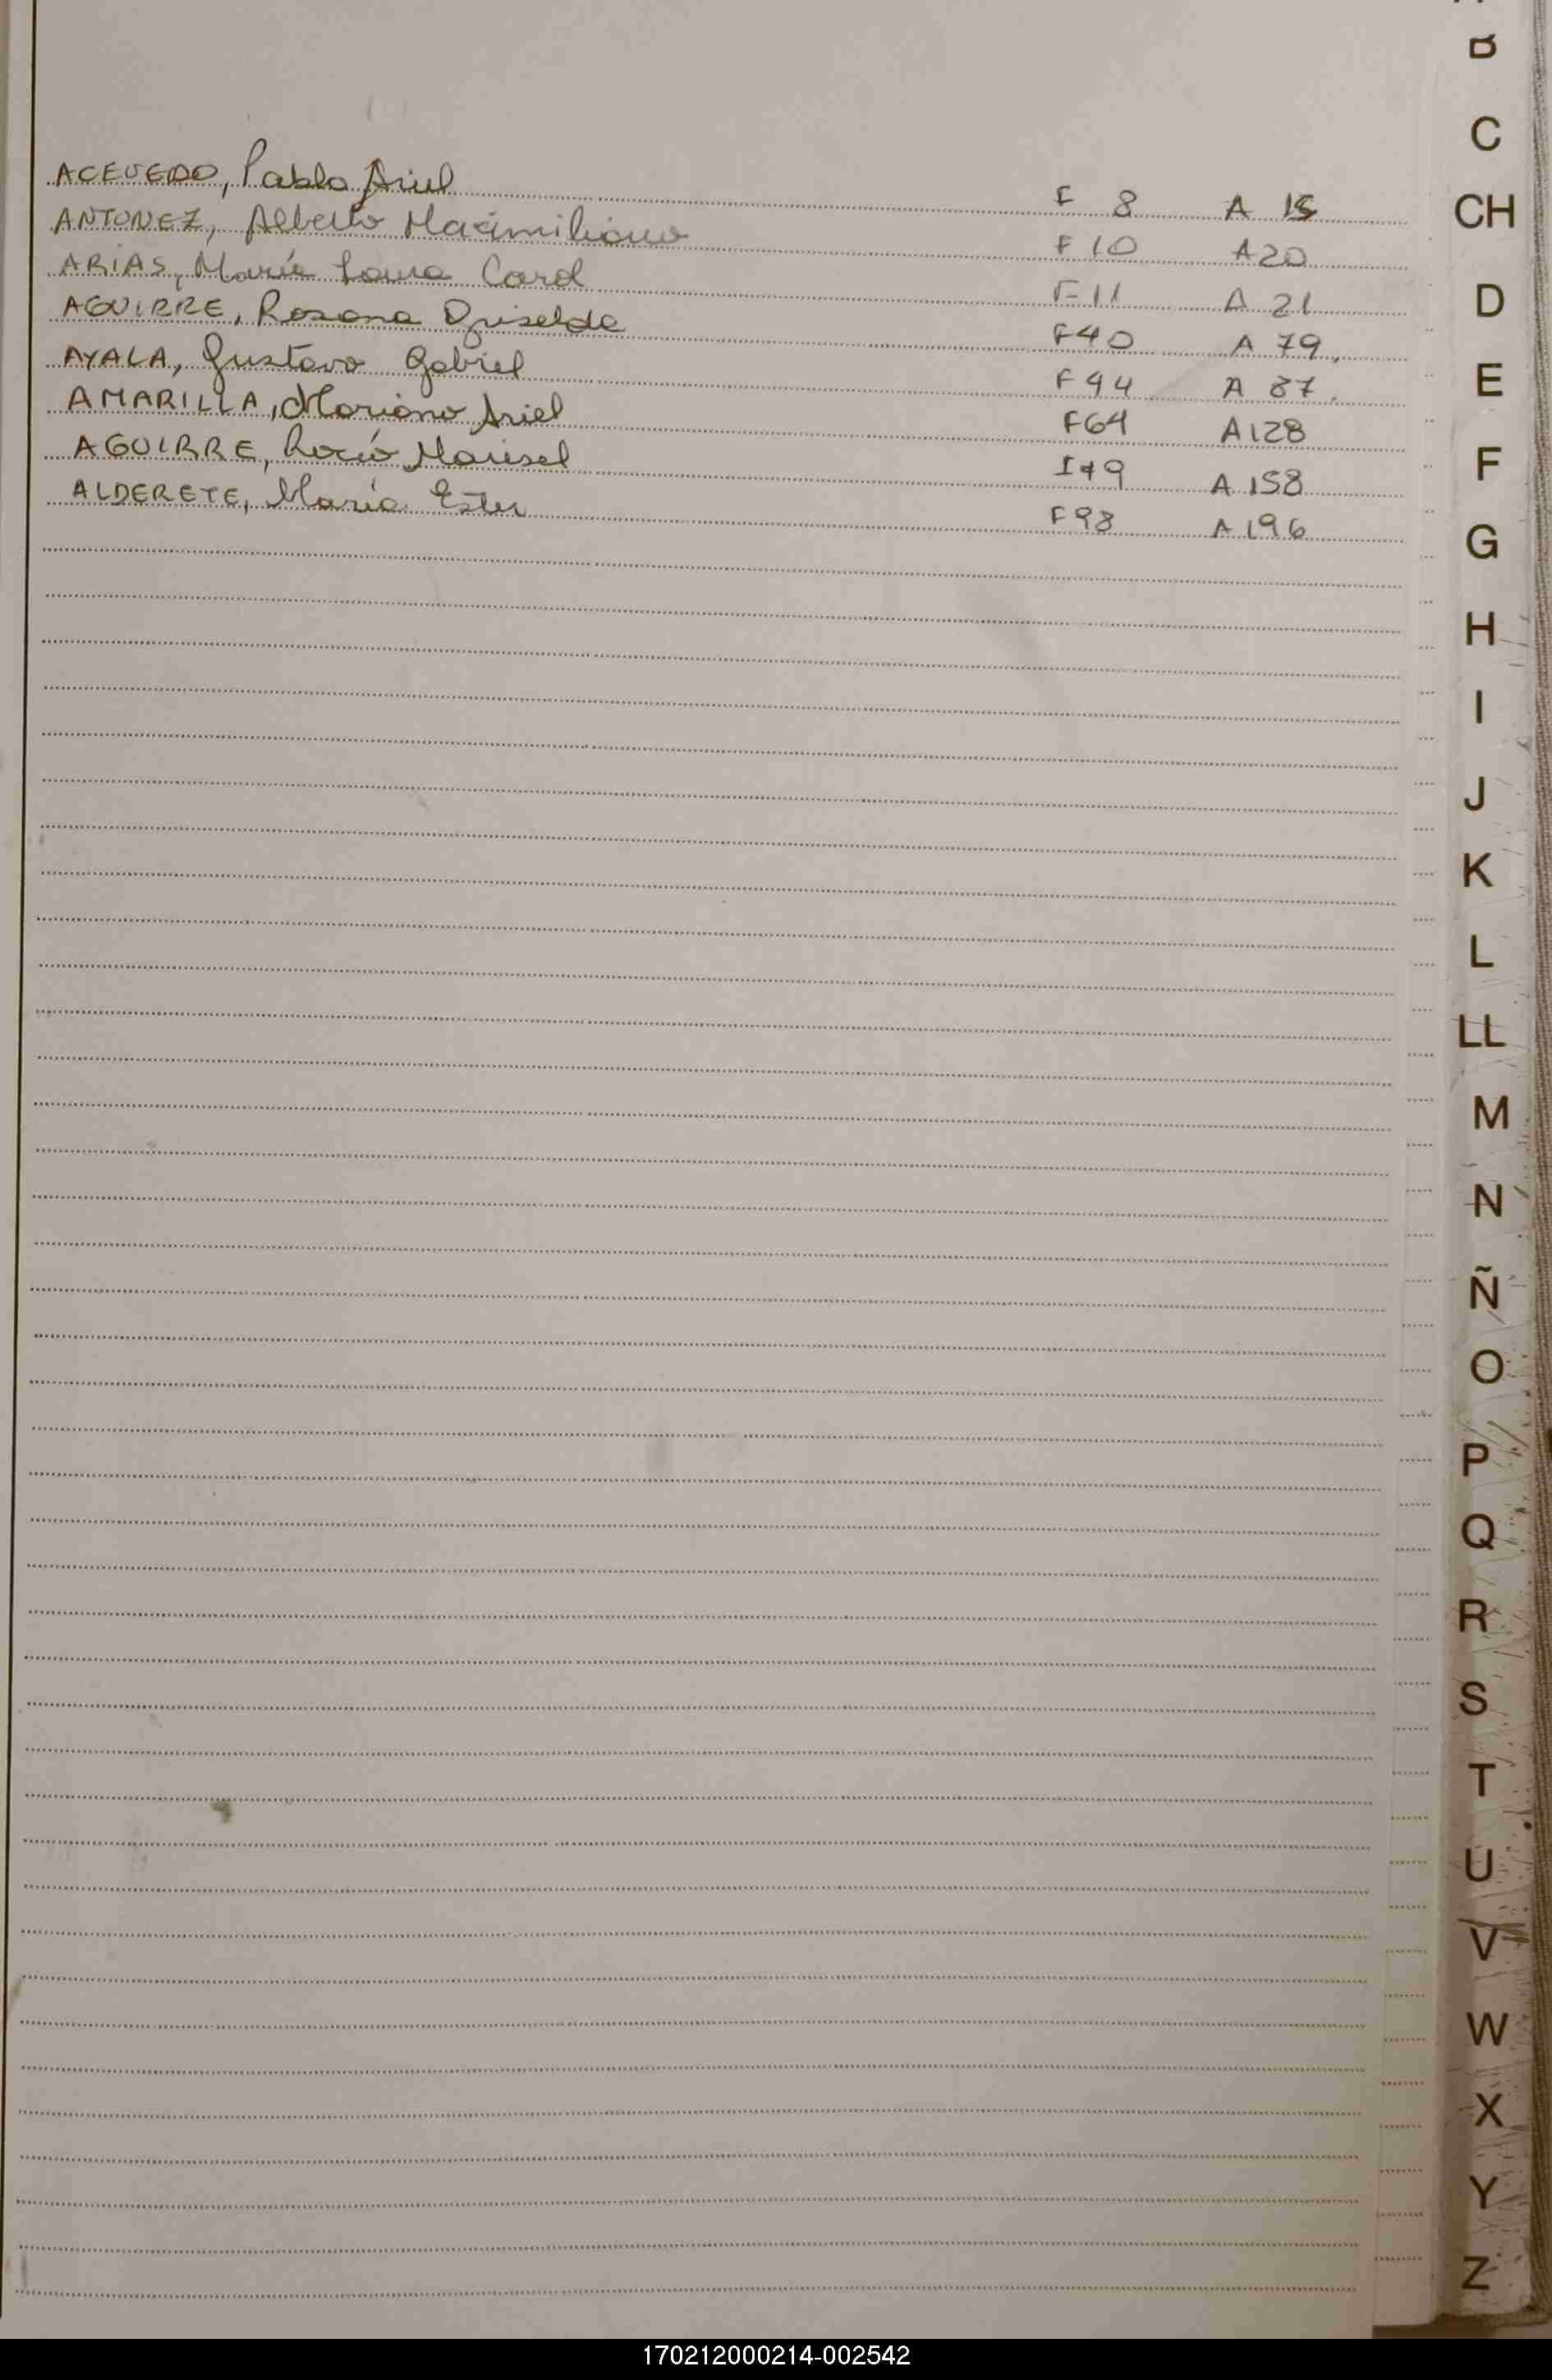 ACEVEDO, Pablo Ariel F 8 A 15
ANTONEZ, Alberto Maximiliano F 10 A 20
ARIAS, María Laura Carol F 11 A 21
AGUIRRE, Rosana Griselda F 40 A 79
AYALA, Gustavo Gabriel F 44 A 87
AMARILLA, Mariano Ariel F 64 A 128
AGUIRRE, Rocío Marisel F 79 A 158
ALDERETE, María Ester F 98 A 196
B
C
CH
D
E
F
G
H
I
J
K
L
LL
M
N
Ñ
O
P
Q
R
S
T
U
V
W
X
Y
Z
170212000214-002542